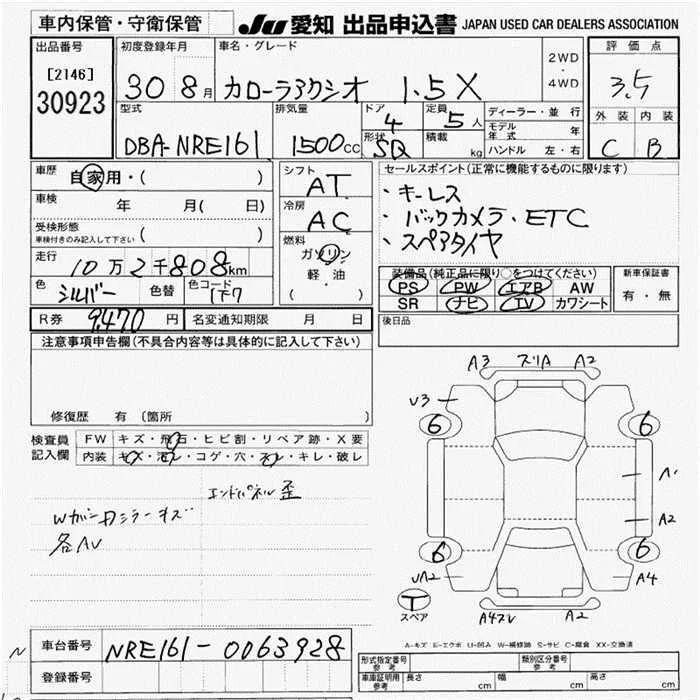 車内保管・守衛保管
JU 愛知 出品申込書 JAPAN USED CAR DEALERS ASSOCIATION
出品番号 [2146] 30923
初度登録年月 30 8月
車名・グレード カローラアクシオ 1.5X
2WD・4WD
評価点 3.5
外装 内装
C B
型式 DBA-NRE161
排気量 1500cc
ドア 4
形状 SD
定員 5人
積載 kg
ディーラー・並行
モデル年式 年
ハンドル 左・右
車歴 自家用・( )
車検 年 月( 日)
受検形態 ( )
車検付きのみ記入して下さい
走行 10万2千808km
色 シルバー 色替 色コード 1F7
シフト AT
冷房 AC
燃料 ガソリン
軽油
( )
セールスポイント(正常に機能するものに限ります)
・キーレス
・バックカメラ・ETC
・スペアタイヤ
装備品(純正品に限り○をつけてください)
PS PW エアB AW
SR ナビ TV カワシート
新車保証書
有・無
後日品
R券 9,470円 名変通知期限 月 日
注意事項申告欄(不具合内容等は具体的に記入して下さい)
修復歴 有 (箇所 )
検査員記入欄
FW キズ・飛石・ヒビ割・リペア跡・X要
内装 キズ・汚レ・コゲ・穴・スレ・キレ・破レ
エンドパネル歪
Wカバー 力ミラーキズ
各AU
A3 スリA A2
U3
6 6
A1
A2
6 6
UA2 A4
T スペア
A4スレ A2
A-キズ E-エクボ U-凹み W-補修跡 S-サビ C-腐食 XX-交換済
車台番号 NRE161-0063928
登録番号
N
形式指定番号 参考 類別区分番号 参考
車庫証明用 参考 長さ cm 幅 cm 高さ cm